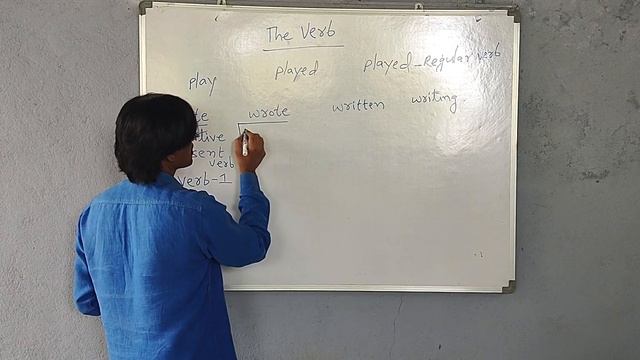 The Verb
play played played-Regular verb
te wrote written writing.
tive
sent
verb
verb-1